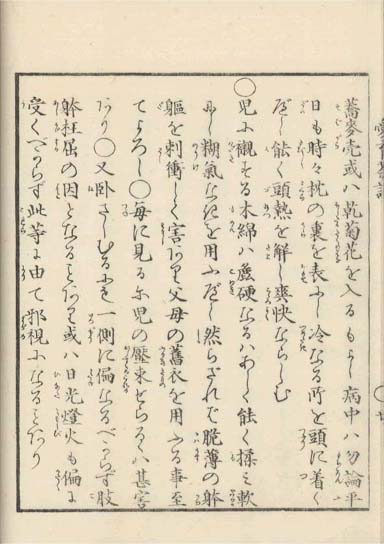 蕎麥壳或ハ乾菊花を入るもよし病中ハ勿論平
日も時々枕の裏を表にし冷なる所を頭に着く
べし能く頭熱を解し爽快ならしむ
〇児に襯する木綿ハ麁硬なるハあしく能く揉て軟
にし糊氣なきを用ふべし然らざれバ脱薄の躰
軀を刺衝して害あり父母の舊衣を用ふる事至
てよろし〇毎に見る尓児の壓束せらるゝハ甚害
あり〇又臥さしむるにも一側に偏なるべからず肢
躰枉屈の因となることあり或ハ日光燈火も偏に
受くべからず此等に由て邪視になることあり